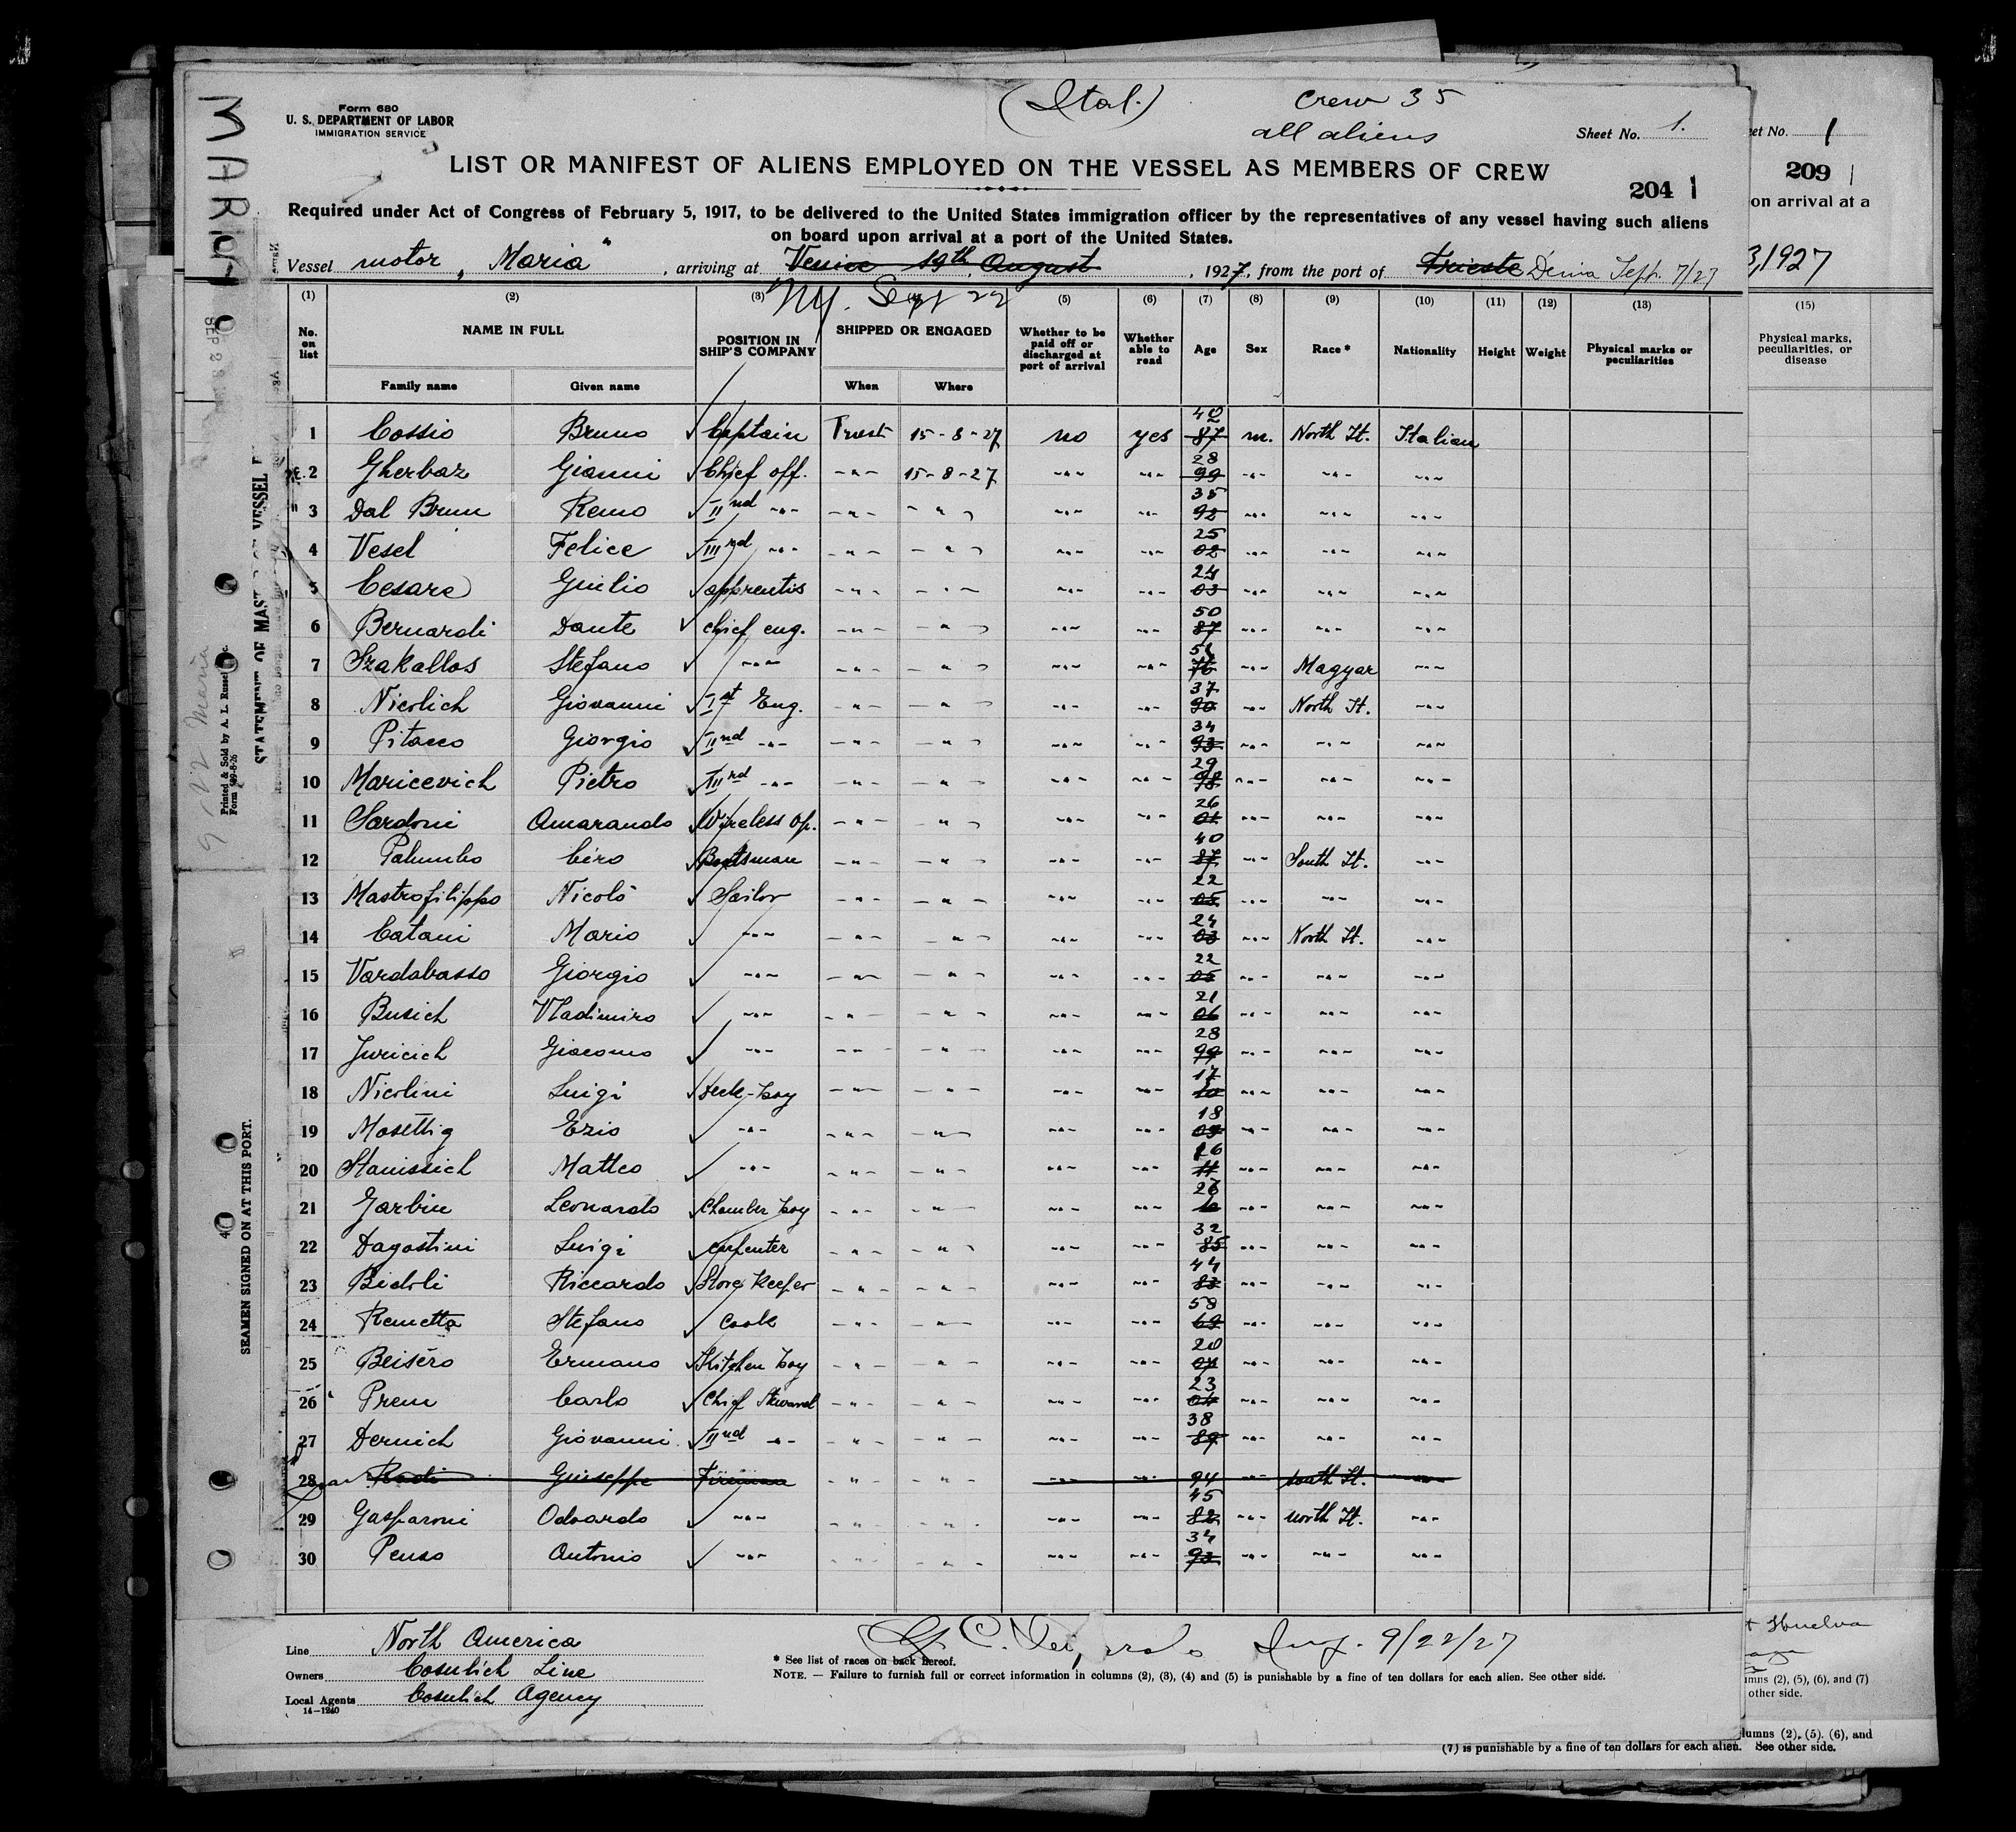 (Ital.)
Crew 35
all aliens
Form 680
U. S. DEPARTMENT OF LABOR
IMMIGRATION SERVICE
Sheet No. 1.
LIST OR MANIFEST OF ALIENS EMPLOYED ON THE VESSEL AS MEMBERS OF CREW
204 1
Required under Act of Congress of February 5, 1917, to be delivered to the United States immigration officer by the representatives of any vessel having such aliens
on board upon arrival at a port of the United States.
Vessel motor "Maria", arriving at Venice 19th August, 1927, from the port of Trieste Denia Sept. 7/27
NY. Sept 22
(1) (2) (3) (5) (6) (7) (8) (9) (10) (11) (12) (13)
No. on list
NAME IN FULL
Family name
Given name
POSITION IN SHIP'S COMPANY
SHIPPED OR ENGAGED
When
Where
Whether to be paid off or discharged at port of arrival
Whether able to read
Age
Sex
Race *
Nationality
Height
Weight
Physical marks or peculiarities
1 Cossio Bruno Captain Triest 15-8-27 no yes 40 87 m. North It. Italian
2 Gherbaz Gianni Chief off. -"- 15-8-27 -"- -"- 28 99 -"- -"- -"-
3 Dal Brun Remo IInd -"- -"- -"- -"- -"- 35 92 -"- -"- -"-
4 Vesel Felice IIIrd -"- -"- -"- -"- -"- 25 02 -"- -"- -"-
5 Cesare Giulio apprentis -"- -"- -"- -"- 24 03 -"- -"- -"-
6 Bernardi Dante chief eng. -"- -"- -"- -"- 50 87 -"- -"- -"-
7 Szakallos Stefano -"- -"- -"- -"- -"- 51 76 -"- Magyar -"-
8 Nicolich Giovanni Ist Eng. -"- -"- -"- -"- 37 90 -"- North It. -"-
9 Pitacco Giorgio IInd -"- -"- -"- -"- -"- 34 93 -"- -"- -"-
10 Maricevich Pietro IIIrd -"- -"- -"- -"- -"- 29 98 -"- -"- -"-
11 Sardoni Amarando Wireless op. -"- -"- -"- -"- 26 01 -"- -"- -"-
12 Palumbo Ciro Boatsman -"- -"- -"- -"- 40 87 -"- South It. -"-
13 Mastrofilippo Nicolò Sailor -"- -"- -"- -"- 22 05 -"- -"- -"-
14 Catani Mario -"- -"- -"- -"- -"- 24 03 -"- North It. -"-
15 Vardabasso Giorgio -"- -"- -"- -"- -"- 22 05 -"- -"- -"-
16 Busich Vladimiro -"- -"- -"- -"- -"- 21 06 -"- -"- -"-
17 Juricich Giacomo -"- -"- -"- -"- -"- 28 99 -"- -"- -"-
18 Nicolini Luigi Deck-boy -"- -"- -"- -"- 17 10 -"- -"- -"-
19 Mosettig Ezio -"- -"- -"- -"- -"- 18 09 -"- -"- -"-
20 Stanissich Matteo -"- -"- -"- -"- -"- 16 11 -"- -"- -"-
21 Garbin Leonardo Chamber boy -"- -"- -"- -"- -"- -"- -"-
22 Dagostini Luigi carpenter -"- -"- -"- -"- 32 85 -"- -"- -"-
23 Bidoli Riccardo Store Keeper -"- -"- -"- -"- 44 83 -"- -"- -"-
24 Remetta Stefano cook -"- -"- -"- -"- 58 69 -"- -"- -"-
25 Beisero Ermano Kitchen boy -"- -"- -"- -"- 20 07 -"- -"- -"-
26 Prem Carlo Chief Steward -"- -"- -"- -"- 23 04 -"- -"- -"-
27 Dernich Giovanni IInd -"- -"- -"- -"- -"- 38 89 -"- -"- -"-
28 Radi Giuseppe Fireman -"- -"- -"- -"- 94 -"- South It. -"-
29 Gasparoni Odoardo -"- -"- -"- -"- -"- 45 82 -"- north It. -"-
30 Penso Antonio -"- -"- -"- -"- -"- 34 93 -"- -"- -"-
Insp. 9/22/27
Line North America
Owners Cosulich Line
Local Agents Cosulich Agency
14-1240
* See list of races on back hereof.
NOTE. — Failure to furnish full or correct information in columns (2), (3), (4) and (5) is punishable by a fine of ten dollars for each alien. See other side.
MARIA
SEP 22
9/22 Maria
Printed & Sold by A. L. Russel
STATEMENT OF MAST OF VESSEL
SEAMEN SIGNED ON AT THIS PORT.
et No. 1
209 1
on arrival at a
3, 1927
(15)
Physical marks, peculiarities, or disease
+ Huelva
umns (2), (5), (6), and (7)
other side.
lumns (2), (5), (6), and
(7) is punishable by a fine of ten dollars for each alien. See other side.